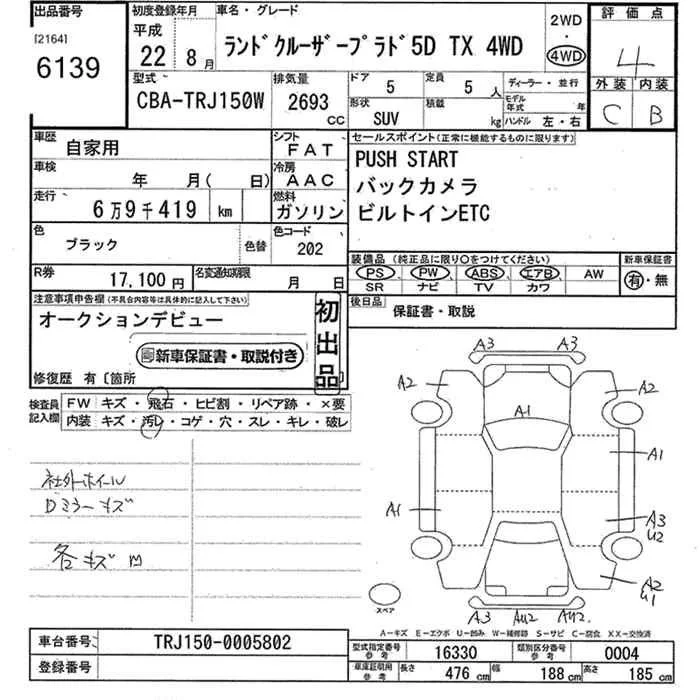 出品番号
[2164]
6139
初度登録年月
平成
22 8月
車名・グレード
ランドクルーザープラド5D TX 4WD
2WD
・
4WD
評価点
4
外装 内装
C B
型式
CBA-TRJ150W
排気量
2693
CC
ドア
5
定員
5 人
形状
SUV
積載
kg
ディーラー・並行
モデル年式 年
ハンドル 左・右
車歴
自家用
シフト
FAT
車検
年 月( 日)
冷房
AAC
走行
6万9千419 km
燃料
ガソリン
色
ブラック
色替
色コード
202
R券
17,100円
名変通知期限
月 日
セールスポイント(正常に機能するものに限ります)
PUSH START
バックカメラ
ビルトインETC
装備品 (純正品に限り○をつけてください)
PS PW ABS エアB AW
SR ナビ TV カワ
新車保証書
有・無
後日品
保証書・取説
注意事項申告欄(不具合内容等は具体的に記入して下さい)
オークションデビュー
新車保証書・取説付き
初出品
修復歴 有〔箇所
検査員記入欄
FW キズ・飛石・ヒビ割・リペア跡・×要
内装 キズ・汚レ・コゲ・穴・スレ・キレ・破レ
社外ホイール
Dミラーキズ
各キズ
A3 A3
A2 A2
A1
A1
A1
A3
U2
A2
U1
A3 AU2 AU2
スペア
A-キズ E-エクボ U-凹み W-補修跡 S-サビ C-腐食 XX-交換済
車台番号
TRJ150-0005802
登録番号
型式指定番号
参考
16330
類別区分番号
参考
0004
車庫証明用
参考
長さ 476 cm 幅 188 cm 高さ 185 cm